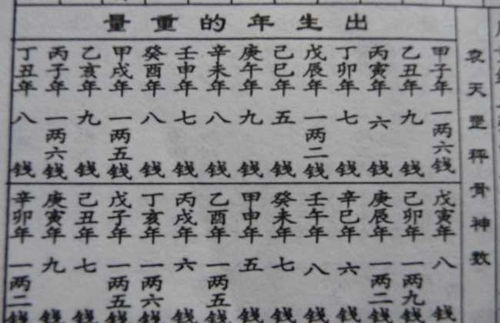 袁天罡秤骨神數
出生年的重量
甲子年 一两六錢
乙丑年 九錢
丙寅年 六錢
丁卯年 七錢
戊辰年 一两二錢
己巳年 五錢
庚午年 九錢
辛未年 八錢
壬申年 七錢
癸酉年 八錢
甲戌年 一两五錢
乙亥年 九錢
丙子年 一两六錢
丁丑年 八錢
戊寅年 八錢
己卯年 一两九錢
庚辰年 一两二錢
辛巳年 六錢
壬午年 八錢
癸未年 七錢
甲申年 五錢
乙酉年 一两五錢
丙戌年 六錢
丁亥年 一两六錢
戊子年 一两五錢
己丑年 七錢
庚寅年 九錢
辛卯年 一两二錢